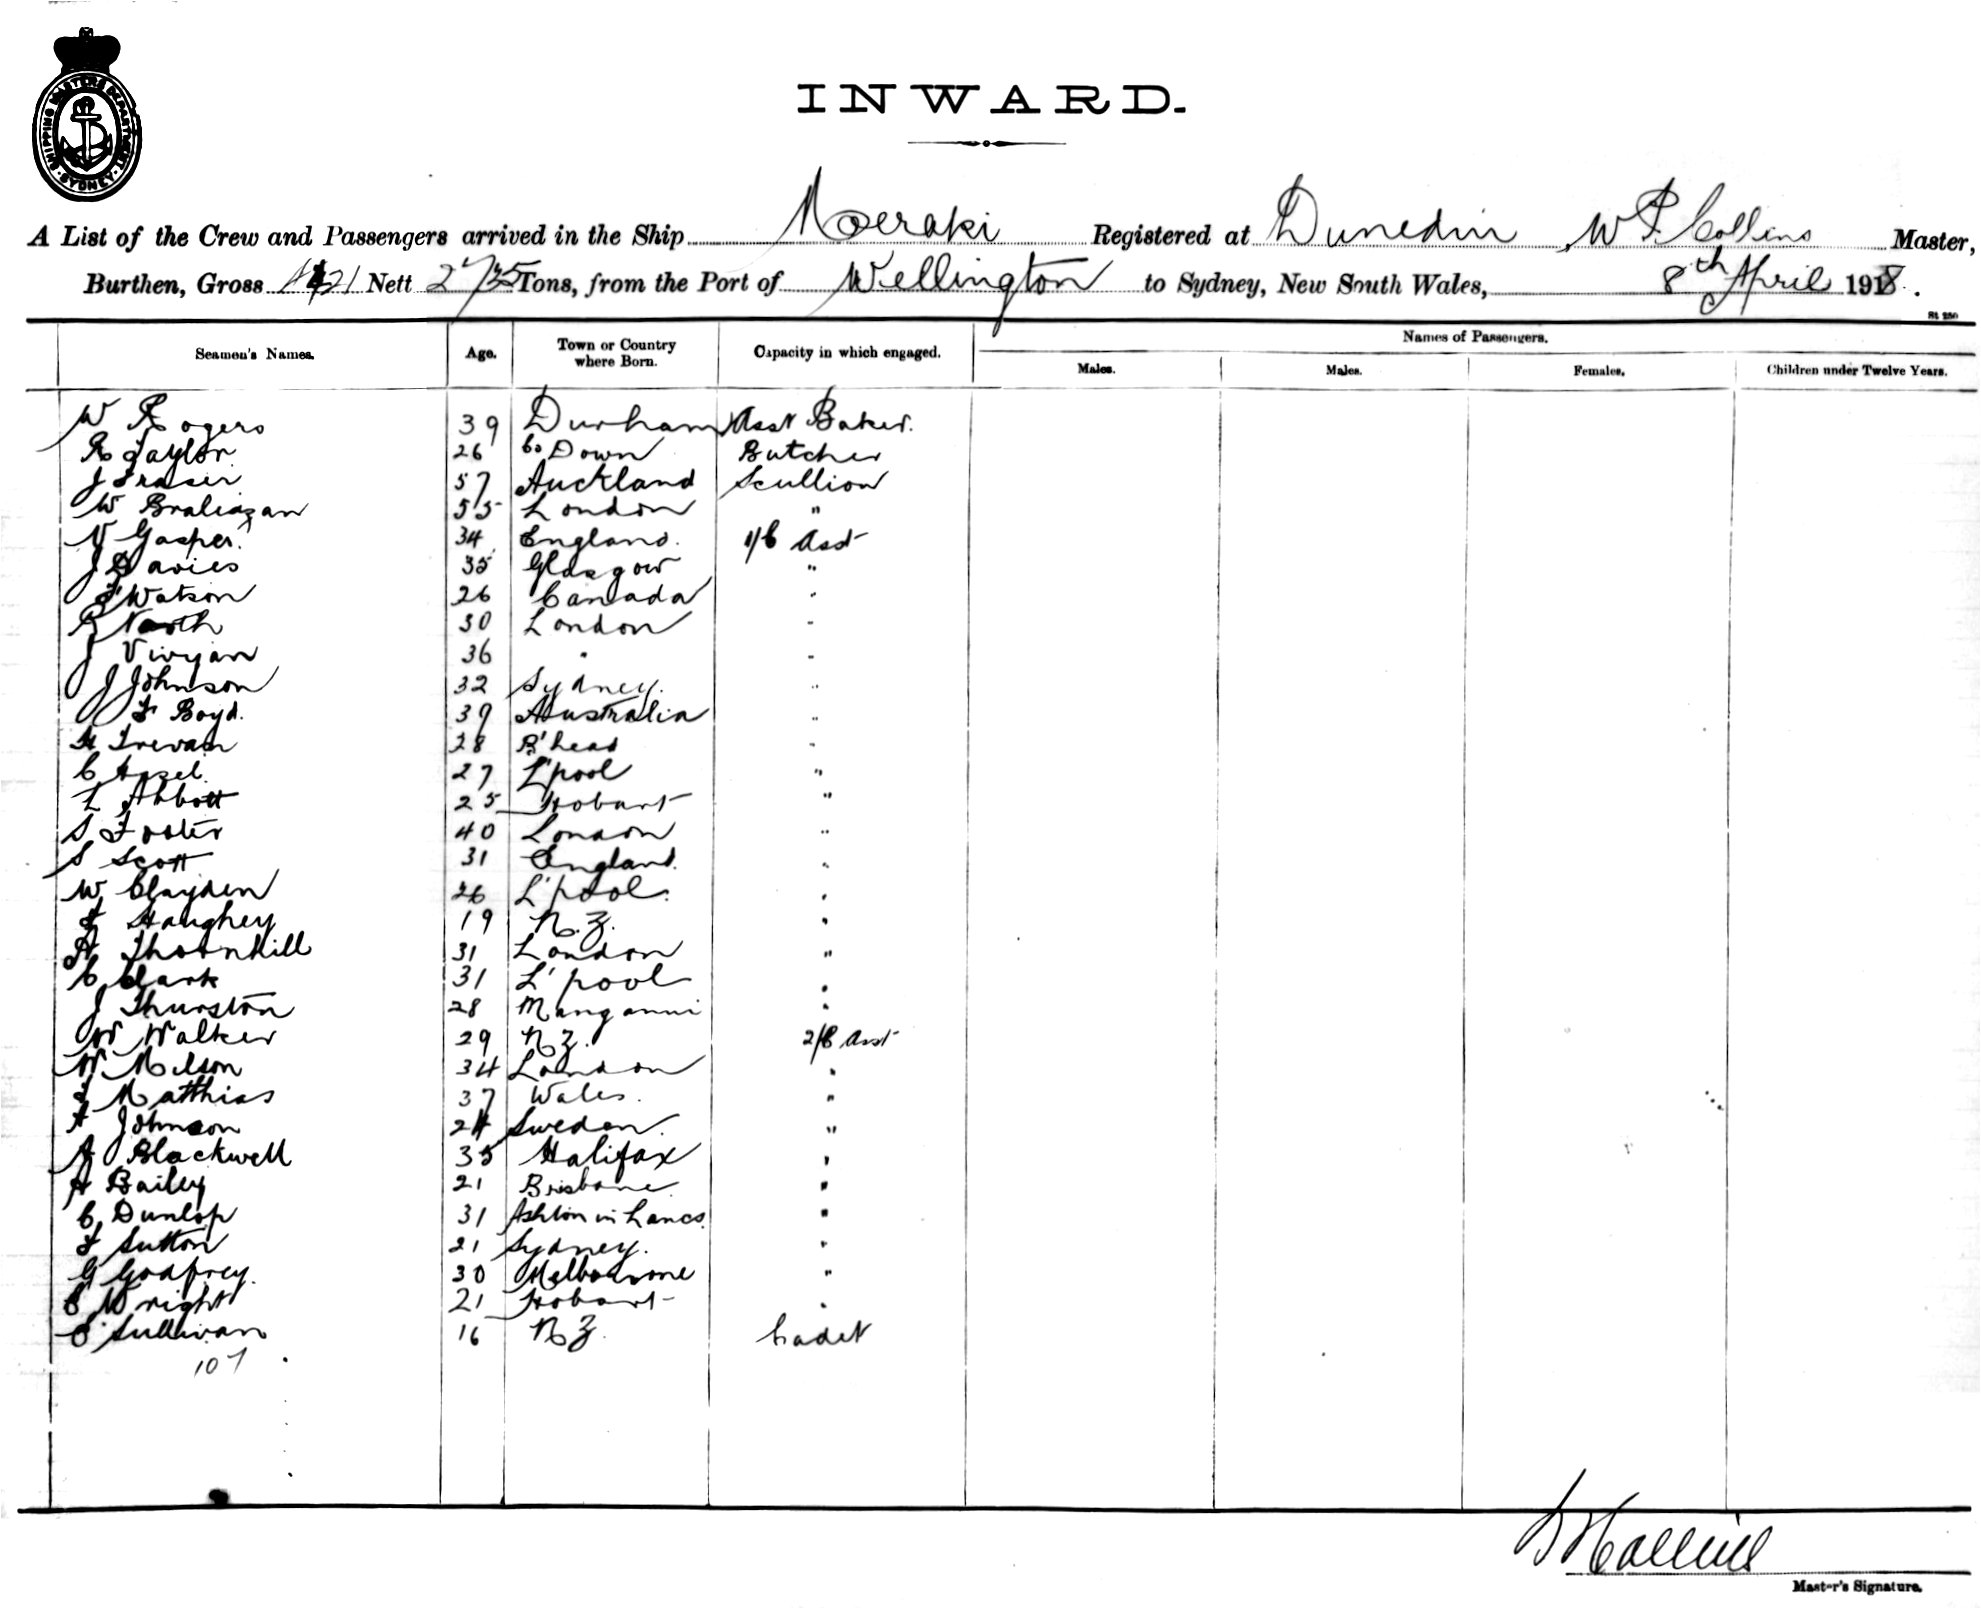 SHIPPING MASTERS DEPARTMENT · SYDNEY ·
INWARD.
A List of the Crew and Passengers arrived in the Ship Moeraki Registered at Dunedin W P Collins Master,
Burthen, Gross 4421 Nett 2735 Tons, from the Port of Wellington to Sydney, New South Wales, 8th April 1918.
St 250
Seamen's Names. Age. Town or Country where Born. Capacity in which engaged. Names of Passengers.
Males. Males. Females. Children under Twelve Years.
W Rogers 39 Durham Asst Baker.
R Taylor 26 Co Down Butcher
J Fraser 57 Auckland Scullion
W 55 London "
V Gasper. 34 England. 1/C Asst
J Davies 35 Glasgow "
F Watson 26 Canada "
R North 30 London "
J Vivyan 36 " "
J Johnson 32 Sydney. "
F Boyd. 39 Australia "
H Trevan 28 B'head "
C Hazel. 27 L'pool "
L Abbott 25 Hobart "
S Foster 40 London "
S Scott 31 England. "
W Clayden 26 L'pool. "
F Haughey 19 N.Z. "
A Thornhill 31 London "
C Clark 31 L'pool "
J Thurston 28 Manganui "
W Walker 29 N Z. 2/C Asst
W Nelson 34 London "
F Matthias 37 Wales. "
A Johnson 24 Sweden. "
A Blackwell 35 Halifax "
A Bailey 21 Brisbane "
C Dunlop 31 Ashton in Lancs. "
F Sutton 21 Sydney. "
G Godfrey. 30 Melbourne "
C Wright 21 Hobart "
E Sullivan 16 N Z. Cadet
107
Collins
Master's Signature.